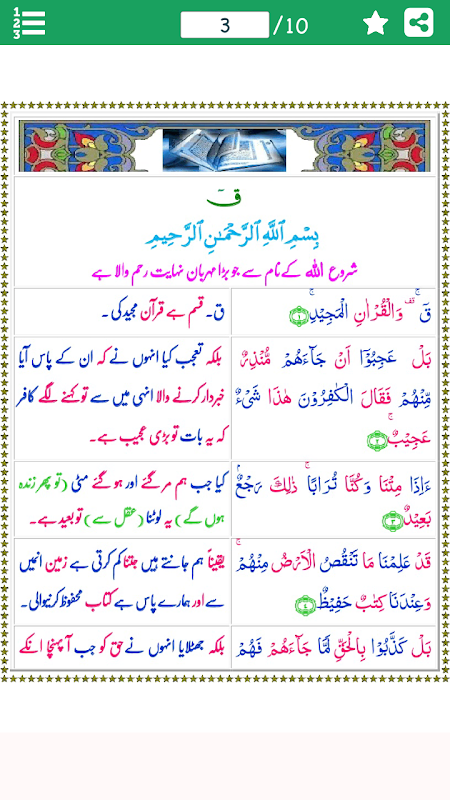 1
2
3
3 /10
قٓ
بِسْمِ ٱللَّهِ ٱلرَّحْمَـٰنِ ٱلرَّحِيمِ
شروع اللہ کے نام سے جو بڑا مہربان نہایت رحم والا ہے
قٓ ۚ۟ وَالْقُرْاٰنِ الْمَجِيْدِ ۚ ﴿١﴾
ق۔ قسم ہے قرآن مجید کی۔
بَلْ عَجِبُوْٓا اَنْ جَآءَهُمْ مُّنْذِرٌ
مِّنْهُمْ فَقَالَ الْكٰفِرُوْنَ هٰذَا شَیْءٌ
عَجِيْبٌ ۚ ﴿٢﴾
بلکہ تعجب کیا انہوں نے کہ ان کے پاس آیا
خبردار کرنے والا انہی میں سے تو کہنے لگے کافر
کہ یہ بات تو بڑی عجیب ہے۔
ءَاِذَا مِتْنَا وَكُنَّا تُرَابًا ۚ ذٰلِكَ رَجْعٌۢ
بَعِيْدٌ ﴿٣﴾
کیا جب ہم مر گئے اور ہو گئے مٹی (تو پھر زندہ
ہوں گے) یہ لوٹنا (عقل سے) تو بعید ہے۔
قَدْ عَلِمْنَا مَا تَنْقُصُ الْاَرْضُ مِنْهُمْ ۚ
وَعِنْدَنَا كِتٰبٌ حَفِيْظٌ ﴿٤﴾
یقیناً ہم جانتے ہیں جتنا کم کرتی ہے زمین انہیں
سے اور ہمارے پاس ہے کتاب محفوظ کرنیوالی۔
بَلْ كَذَّبُوْا بِالْحَقِّ لَمَّا جَآءَهُمْ فَهُمْ
بلکہ جھٹلایا انہوں نے حق کو جب آ پہنچا انکے